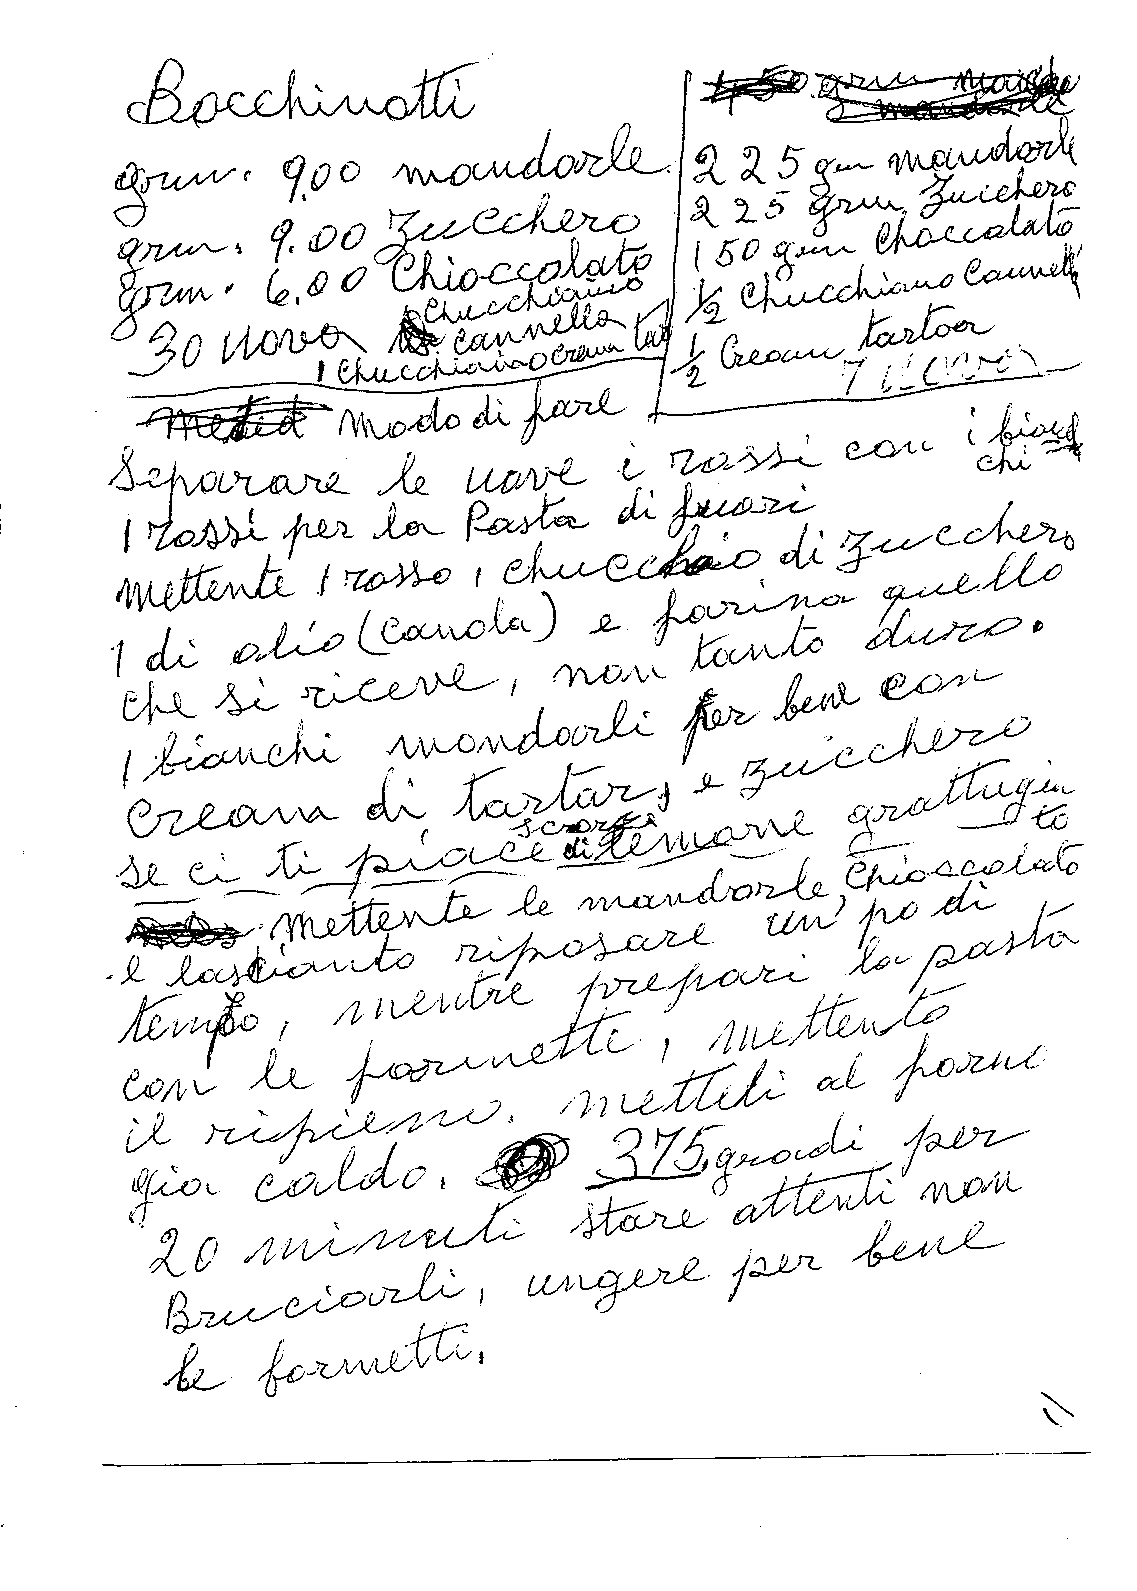 Bocchinotti
grm. 9.00 mandorle
grm. 9.00 Zucchero
grm. 6.00 Chioccolato
30 uova
1 Chucchiaino
cannella
1 Chucchiaino Cream tar
225 gm mandorle
225 grm Zucchero
150 grm Choccolato
1/2 Chucchiano Cannella
1/2 Cream tartar
7 uova
Modo di fare
Separare le uove i rossi con i bian
chi
I rossi per la Pasta di fuori
mettente 1 rosso, chucchiaio di zucchero
1 di olio (canola) e farina quello
che si riceve, non tanto duro.
I bianchi mondarli per bene con
Cream di tartar, e zucchero
se ci ti piace scorza di lemone grattugia
to
Mettente le mandorle, Chioccolato
e lascianto riposare un po di
tempo, mentre prepari la pasta
con le formette, mettento
il ripieno. metteli al forno
gia caldo. 375 gradi per
20 minuti stare attenti non
Bruciarli, ungere per bene
le formetti.